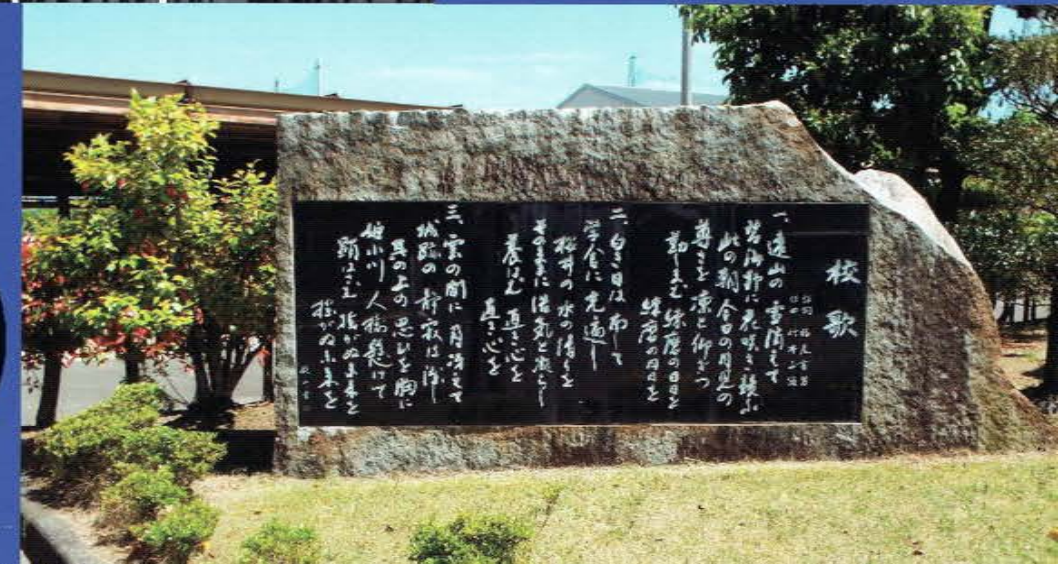 校歌
一、遠山の 雪消えて
碧海野に 花咲き競ふ
此の朝 今日の
尊さを 凛と仰ぎつ
勤しまむ 練磨の日日を
練磨の日日を
二、白き日は
学舎に 光遍し
桜井の 水の清らを
そのままに 浩気を凝らし
養はむ 直き心を
直き心を
三、雲の間に 月
城跡の 静寂は
馬の上の 思ひを胸に
姫小川 人橋懸けて
顕はさむ 揺がぬ未来を
揺がぬ未来を